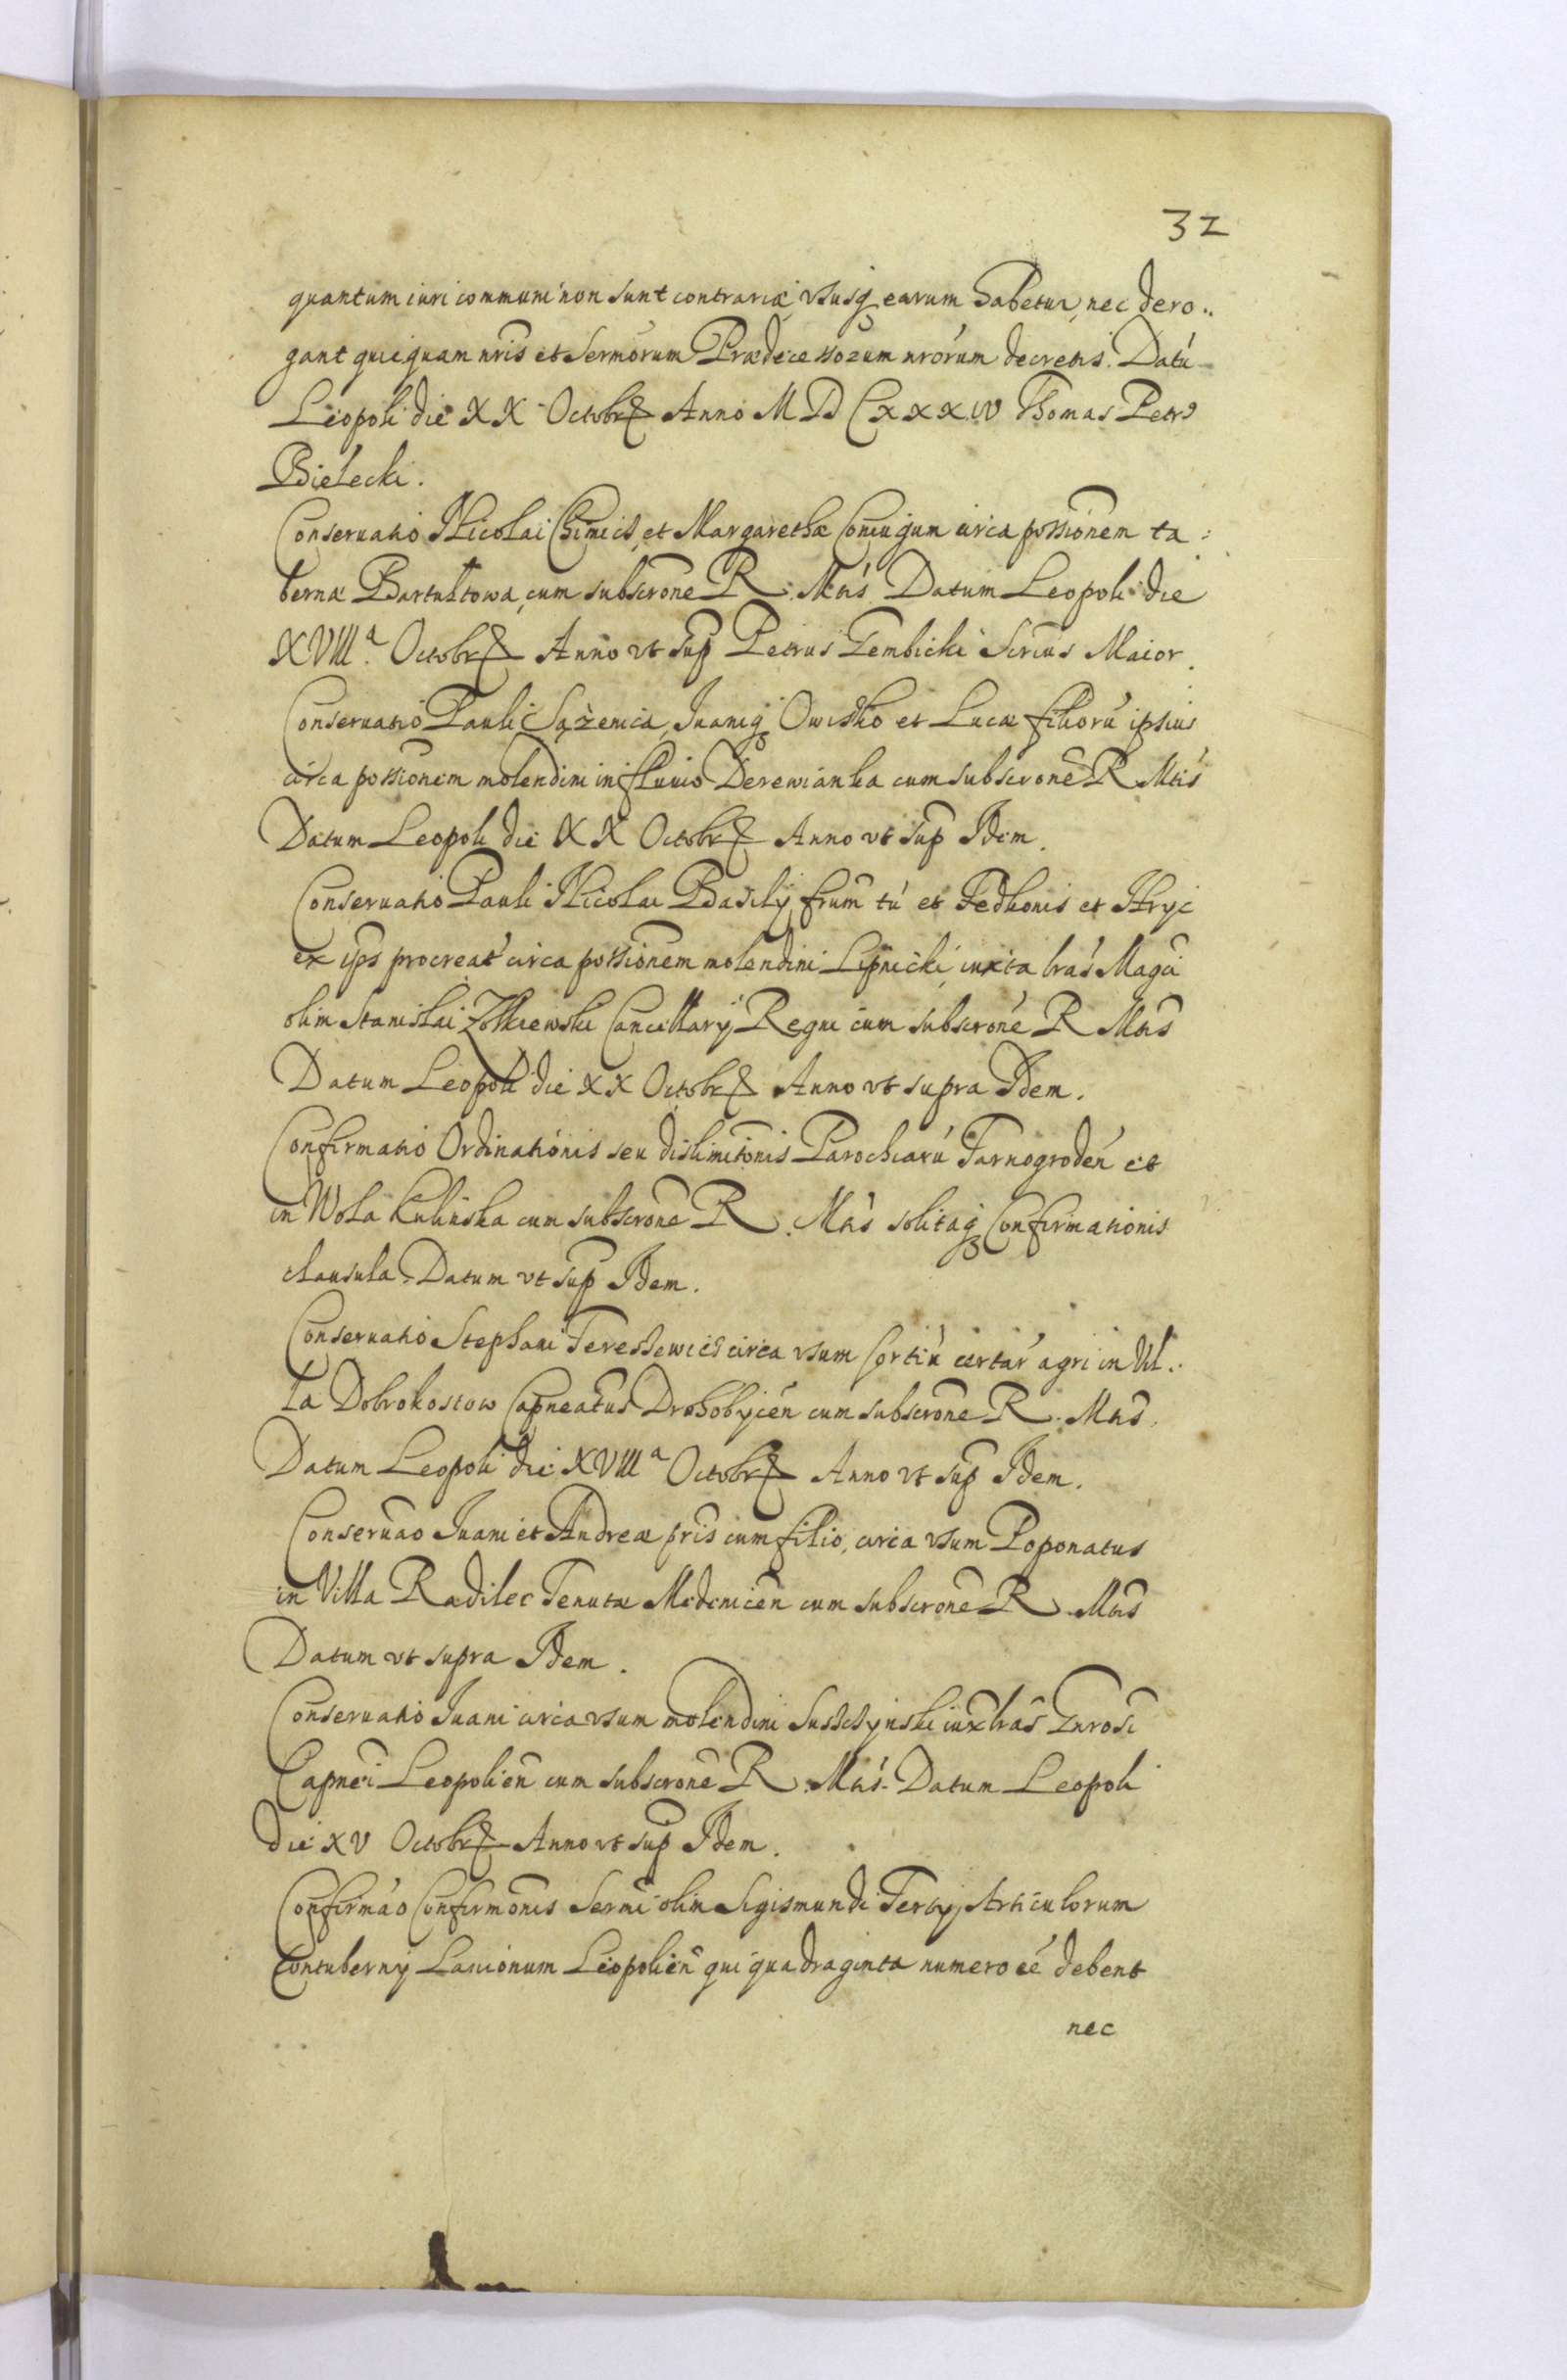 32
quantum iuri communi non sunt contrariæ, ususq earum habetur, nec dero..
gant quicquam nris et Sermorum Prædecessorum nrorum decretis. Datū
Leopoli die XX Octobr Anno M D C xxxiv Thomas Petrs
Bielecki.
Conseruatio Nicolai et Margarethæ Coniugum circa possionem ta:
bernæ Bartultowa, cum subscrone R. Mtis Datum Leopoli die
XVIIIa. Octobr Anno vt sup Petrus Gembicki Scrius Maior.
Conseruatio Pauli Sążenica, Iuaniq Owisko et Lucæ filiorū ipsius
circa possionem molendini in fluuio Derewianka cum subscrone R Mtis
Datum Leopoli die XX Octobr Anno vt sup Idem.
Conseruatio Pauli Nicolai Basilij frum tū et Fedkonis et Hryc
ex ips procreat circa possionem molendini Lipnicki, iuxta lras Magci
olim Stanislai Zołkiewski Cancellarij Regni cum subscrone R Mtis
Datum Leopoli die XX Octobr Anno vt supra Idem.
Confirmatio Ordinationis seu dislimitonis Parochiarū Tarnogroden et
in Wola Kulinska cum subscrone R. Mtis solitaq Confirmationis
clausula. Datum vt sup Idem.
Conseruatio Stephani Teressewicz circa vsum sortiū certar agri in Vil..
la Dobrokostow Capneatus Drohobycen cum subscrone R. Mtis.
Datum Leopoli die XVIIIa Octobr Anno vt sup Idem.
Conseruao Iuani et Andreæ pris cum filio, circa vsum Poponatus
in Villa Radilec Tenutæ Medenicen cum subscrone R. Mtis
Datum vt supra Idem.
Conseruatio Iuani circa vsum molendini Susstynski iux lras
Capnei Leopolien cum subscrone R. Mtis. Datum Leopoli
die XV Octobr Anno vt sup Idem.
Confirmao Confirmonis Sermi olim Sigismundi Tertij, Articulorum
Contubernij Lanionum Leopolien qui quadraginta numero eē debent
nec